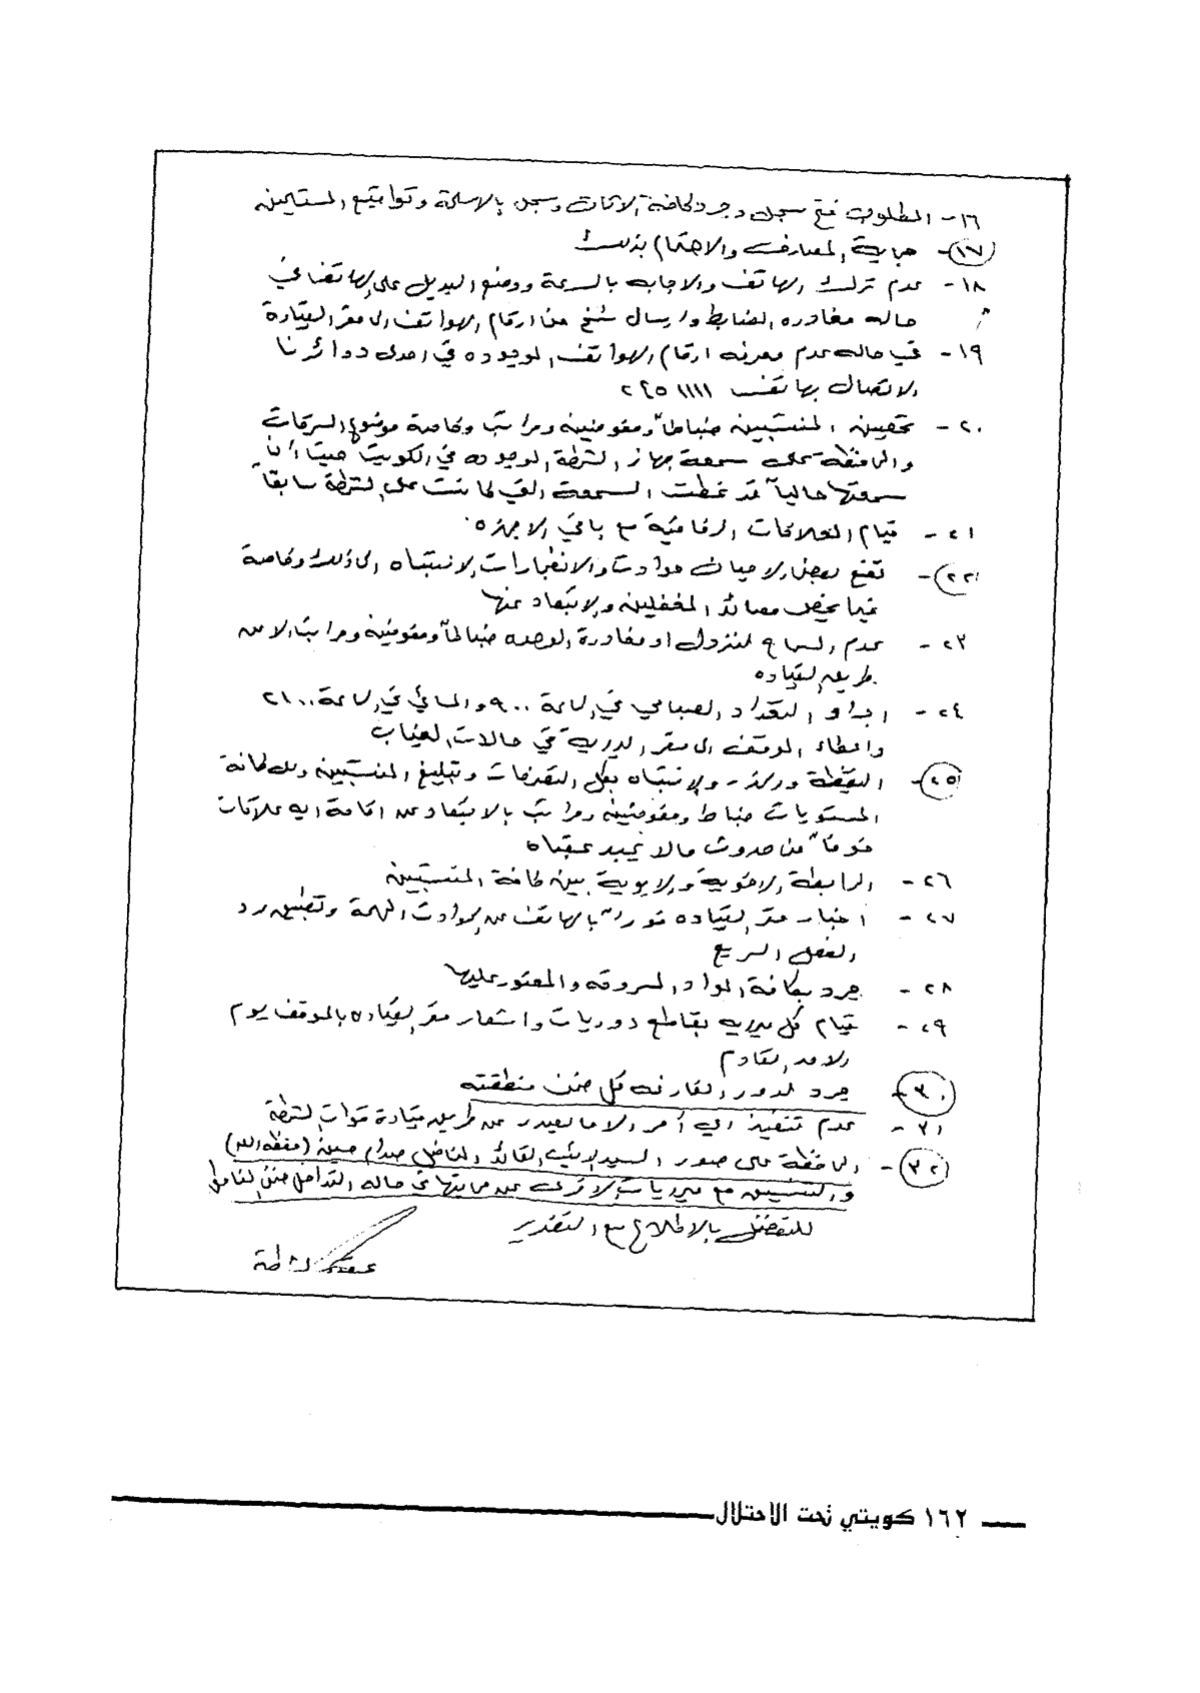 ١٦- المطلوب فتح سجل وجرد لكافة الاثاث وسجل بالاسلحة وتواقيع المستلمين
١٧- جباية المصارف والاهتمام بذلك
١٨- عدم ترك الهاتف والاجابه بالسرعة ووضع البديل على الهاتف في
حاله مغادره الضابط وارسال نسخ من ارقام الهواتف الى مقر القيادة
١٩- في حاله عدم معرفه ارقام الهواتف الموجوده في احدى دوائرنا
الاتصال بهاتف ٢٤٥١١١١
٢٠- تحصين المنتسبين ضباطاً ومفوضين ومراتب وخاصة موضوع السرقات
والمحافظة على سمعة جهاز الشرطة الموجوده في الكويت حيث أن
سمعتها حالياً قد غطت السمعة التي كانت على الشرطة سابقاً
٢١- قيام العلاقات الرفاقية مع باقي الاجهزه
٢٢- تقع بعض الاحيان حوادث والانفجارات الانتباه الى ذلك وخاصة
فيما يخص مصائد المغفلين والابتعاد عنها
٢٣- عدم السماح لنزول او مغادرة الوحده ضباطاً ومفوضين ومراتب الا من
طريق القياده
٢٤- اجراء التعداد الصباحي في الساعة ٩٠٠ والمسائي في الساعة ٢١٠٠
واعطاء الموقف الى مقر المديرية في حالات الغياب
٢٥- اليقظة والانتباه بكل التصرفات وتبليغ المنتسبين ولكافة
المستويات ضباط ومفوضين ومراتب بالابتعاد عن اقامة ايه علاقات
خوفاً من حدوث مالا يحمد عقباه
٢٦- الرابطة الاخوية والابوية بين كافة المنتسبين
٢٧- اخبار مقر القياده فوراً بالهاتف عن الحوادث المهمة وتطبيق رد
الفعل السريع
٢٨- جرد بكافة المواد المسروقه والمعثور عليها
٢٩- قيام كل مديريه بقاطع دوريات واشعار مقر القياده بالموقف يوم
الاحد القادم
٣٠- جرد الدور الفارغه كل ضمن منطقته
٣١- عدم تنفيذ اي أمر الا ما يصدر عن طريق قيادة قوات الشرطة
٣٢- المحافظة على صور السيد الرئيس القائد المناضل صدام حسين (حفظه الله)
والتنسيق مع المديريات الاخرى عن حمايتها في حاله التداخل ضمن المناطق
للتفضل بالاطلاع مع التقدير
عقيد الشرطة
١٦٢ كويتي تحت الاحتلال